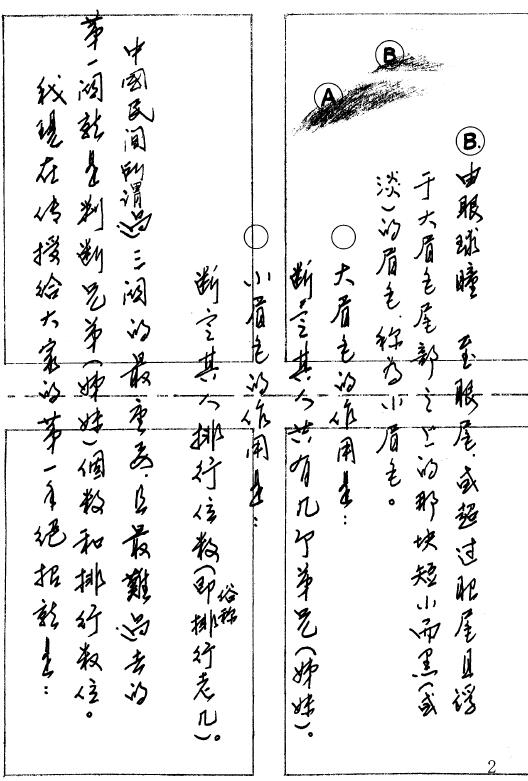 B
A
B. 由眼球瞳 至眼尾或超过眼尾且浮
于大眉毛尾部之上的那块短小而黑(或
淡)的眉毛，称为小眉毛。
○大眉毛的作用是：
断定其人共有几个弟兄(姊妹)。
○小眉毛的作用是：
断定其人排行位数(即俗称排行老几)。
中國民间所谓过三関的最重要，且最難过去的
第一関就是判断兄弟(姊妹)個数和排行数位。
我現在传授给大家的第一手绝招就是：
2